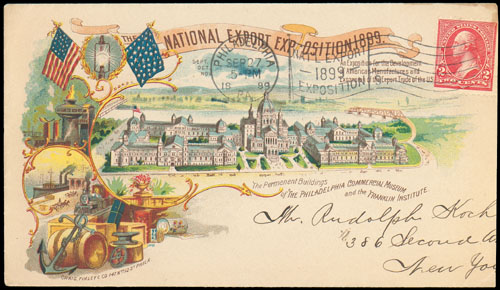 THE NATIONAL EXPORT EXPOSITION. 1899.
SEPT.
OCT.
NOV.
PHILADELPHIA
SEP 27
5 PM
1899
PA.
NAT'L EXPORT
1899
EXPOSITION
An Exposition for the Development
of American Manufactures and
Expansion of the Export Trade of the U.S.
2 2
The Permanent Buildings
of THE PHILADELPHIA COMMERCIAL MUSEUM
and the FRANKLIN INSTITUTE.
CRAIG, FINLEY & CO.
Mr. Rudolph Koch
386 Second A
New Yo